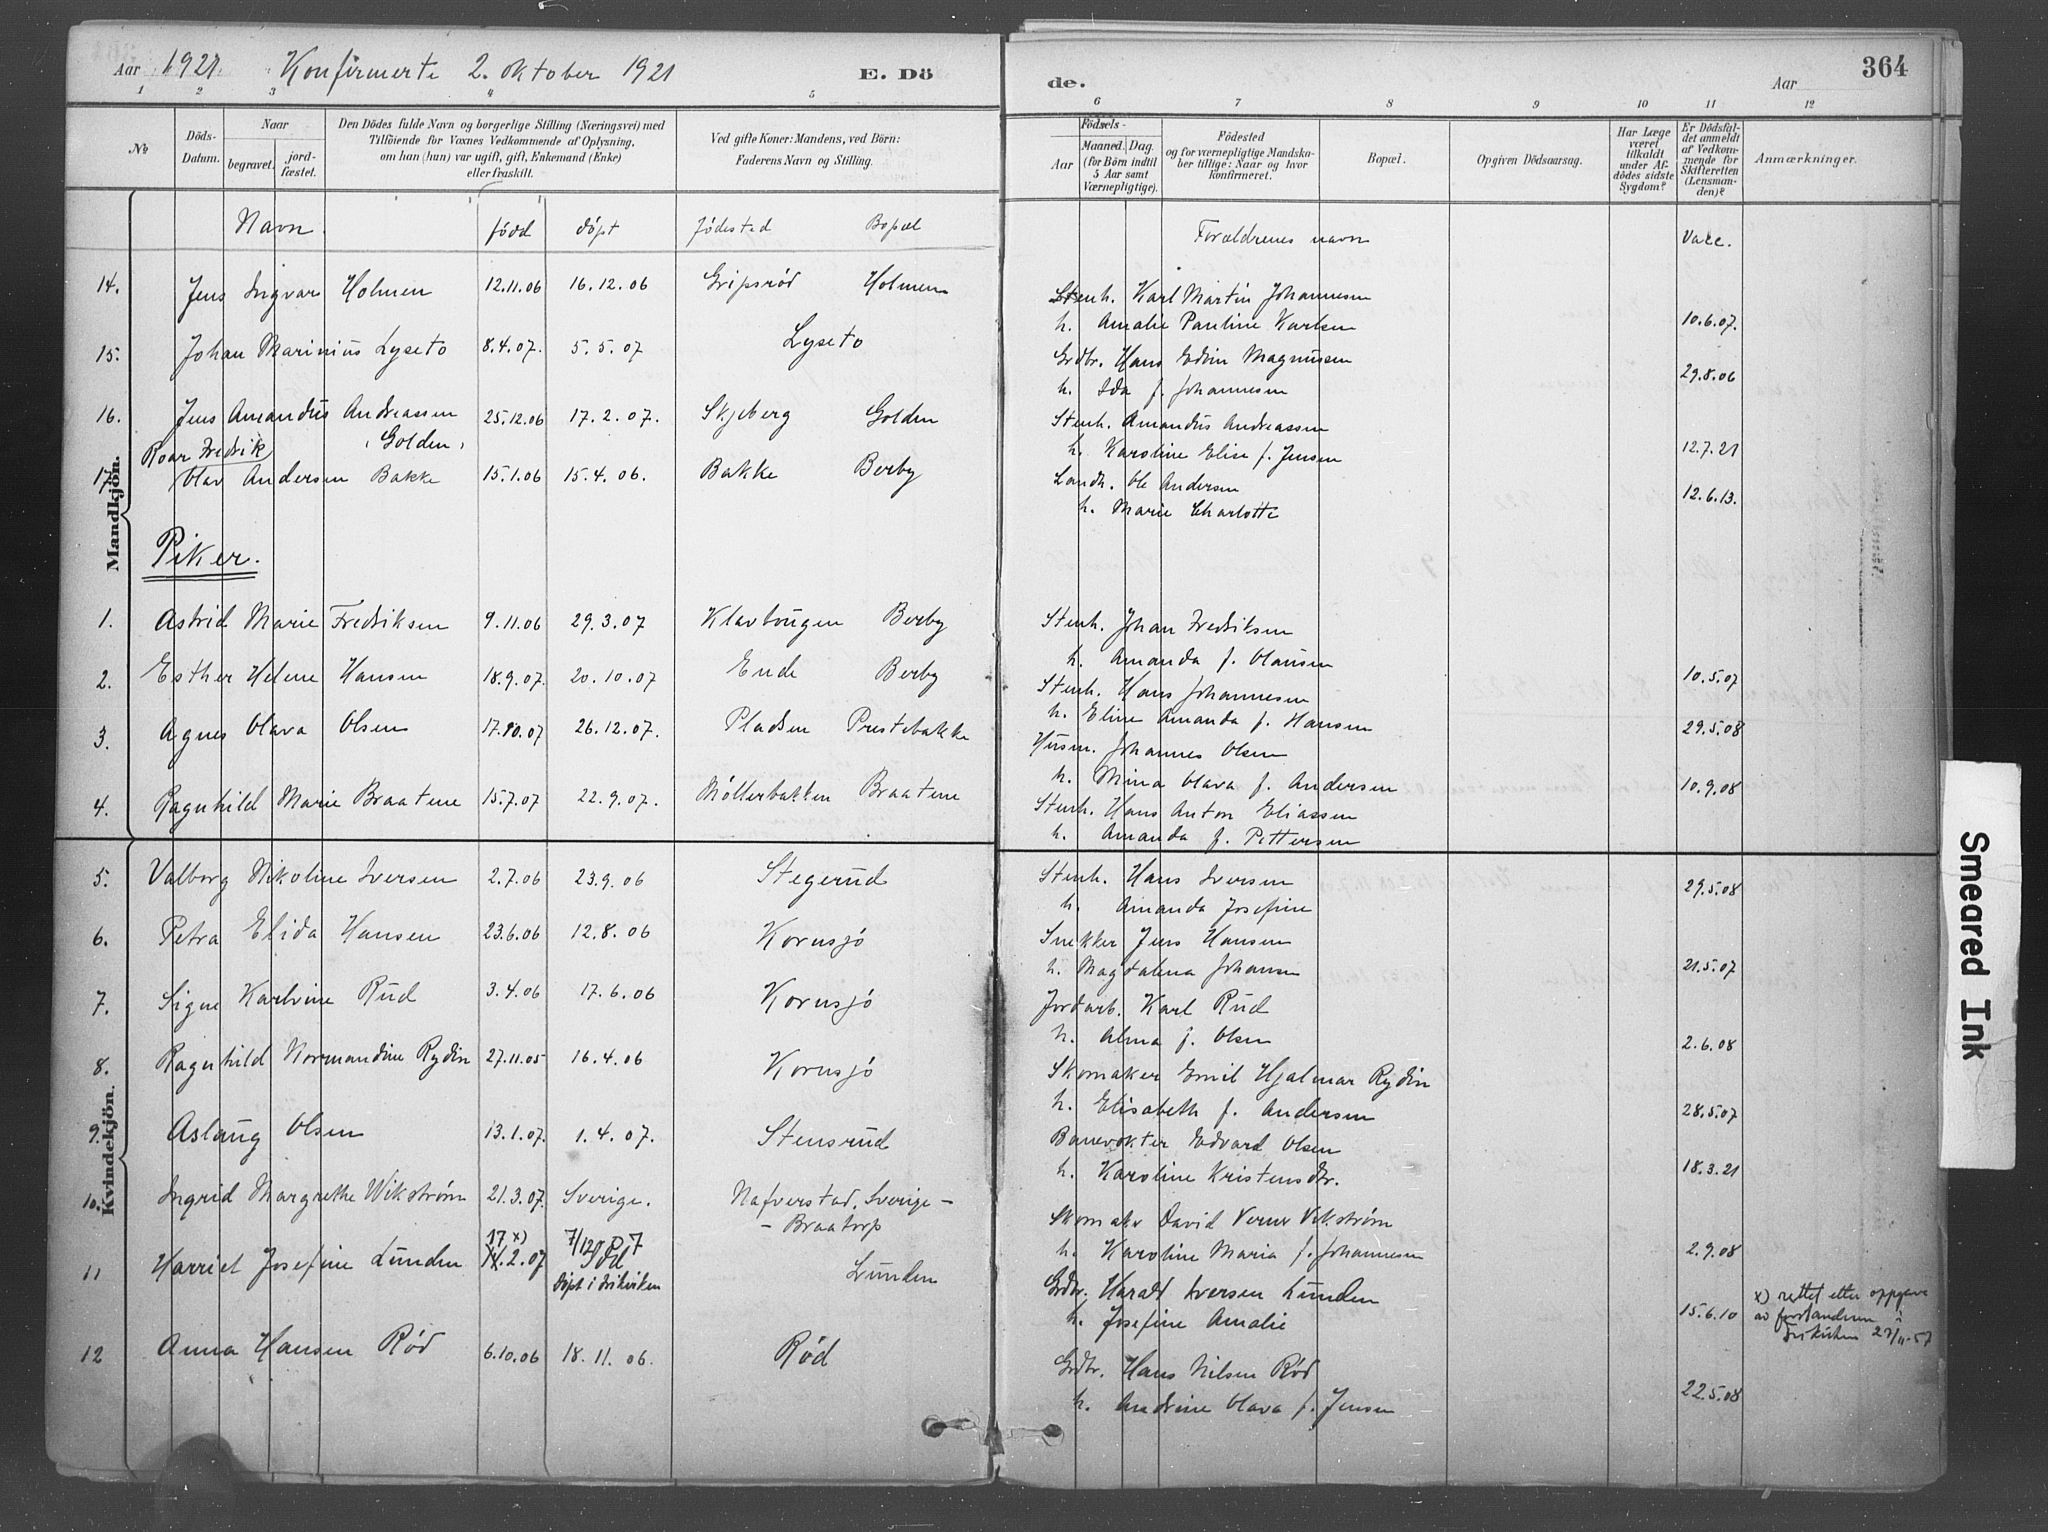 Aar 1921. Konfirmerte 2. oktober 1921 E. Dö
de. Aar 364
1 2 3 4 5
6 7 8 9 10 11 12
№
Döds-Datum.
Naar
begravet.
jordfæstet.
Den Dödes fulde Navn og borgerlige Stilling (Næringsvei) med
Tilföiende for Voxnes Vedkommende af Oplysning,
om han (hun) var ugift, gift, Enkemand (Enke)
eller fraskilt.
Ved gifte Koner: Mandens, ved Börn:
Faderens Navn og Stilling.
Födsels-
Aar
Maaned. Dag.
(for Börn indtil
5 Aar samt
Værnepligtige).
Födested
og for værnepligtige Mandskaber tillige: Naar og hvor
konfirmeret.
Bopæl.
Opgiven Dödsaarsag.
Har Læge
været
tilkaldt
under Afdödes sidste
Sygdom?
Er Dödsfaldet anmeldt
af Vedkommende for
Skifteretten
(Lensmanden)?
Anmærkninger.
Navn. född döpt födested Bopæl Forældrenes navn Vacc.
14. Jens Ingvar Holmen 12.11.06 16.12.06 Gripsröd Holmen Stenh. Karl Martin Johannesen
h. Amalie Pauline Karlsen 10.6.07.
15. Johan Marinius Lyseto 8.4.07. 5.5.07 Lyseto Grdbr. Hans Edvin Magnussen
h. Ida f. Johannesen 29.8.06
16. Jens Amandus Andreassen 25.12.06 17.2.07. Skjeberg Golden Stenh. Amandus Andreassen
(Golden)
h. Karoline Elise f. Jensen 12.7.21
Roar Fredrik
17. Olav Andersen Bakke 15.1.06 15.4.06. Bakke Berby Landh. Ole Andersen
h. Marie Charlotte 12.6.13.
Mandkjön.
Piker.
1. Astrid Marie Fredriksen 9.11.06 29.3.07 Klavbougen Berby Stenh. Johan Fredriksen
h. Amanda f. Olausen 10.5.07
2. Esther Helene Hansen 18.9.07. 20.10.07 Ende Berby Stenh. Hans Johannesen
h. Eline Amanda f. Hansen 29.5.08
3. Agnes Olava Olsen 17.10.07 26.12.07. Pladsen Prestebakke Husm. Johannes Olsen
h. Mina Olava f. Andersen 10.9.08
4. Ragnhild Marie Braatene 15.7.07 22.9.07. Möllerbakken Braatene Stenh. Hans Anton Eliassen
h. Amanda f. Pettersen
5. Valborg Nikoline Iversen 2.7.06 23.9.06 Stegerud Stenh. Hans Iversen
h. Amanda Josefine 29.5.08
6. Petra Elida Hansen 23.6.06 12.8.06 Kornsjö Snekker Jens Hansen
h. Magdalena Johansen 21.5.07
7. Signe Karlvine Rud 3.4.06 17.6.06 Kornsjö Jordarb. Karl Rud
h. Alma f. Olsen 2.6.08
8. Ragnhild Normandine Rydin 27.11.05 16.4.06 Kornsjö Skomaker Emil Hjalmar Rydin
h. Elisabeth f. Andersen 28.5.07
Kvindekjön.
9. Aslaug Olsen 13.1.07. 1.4.07. Stensrud Banevokter Edvard Olsen
h. Karoline Kristensdtr. 18.3.21
10. Ingrid Margrethe Wikström 21.3.07. Sverige. Nafverstad, Sverige -
- Braatorp
Skomaker David Verner Vikström
h. Karoline Maria f. Johannesen 2.9.08
17 x) 7/12 07
11 Harriet Josefine Lunden 2.07 Död Lunden Grdbr. Harald Iversen Lunden
Döpt i frikirken
h. Josefine Amalie 15.6.10
x) rettet etter oppgave
av forstanderen i
Frikirken 23/11-57
12 Anna Hansen Röd 6.10.06 18.11.06. Röd Grdbr. Hans Nilsen Röd
h. Andrine Olava f. Jensen 22.5.08
Smeared Ink